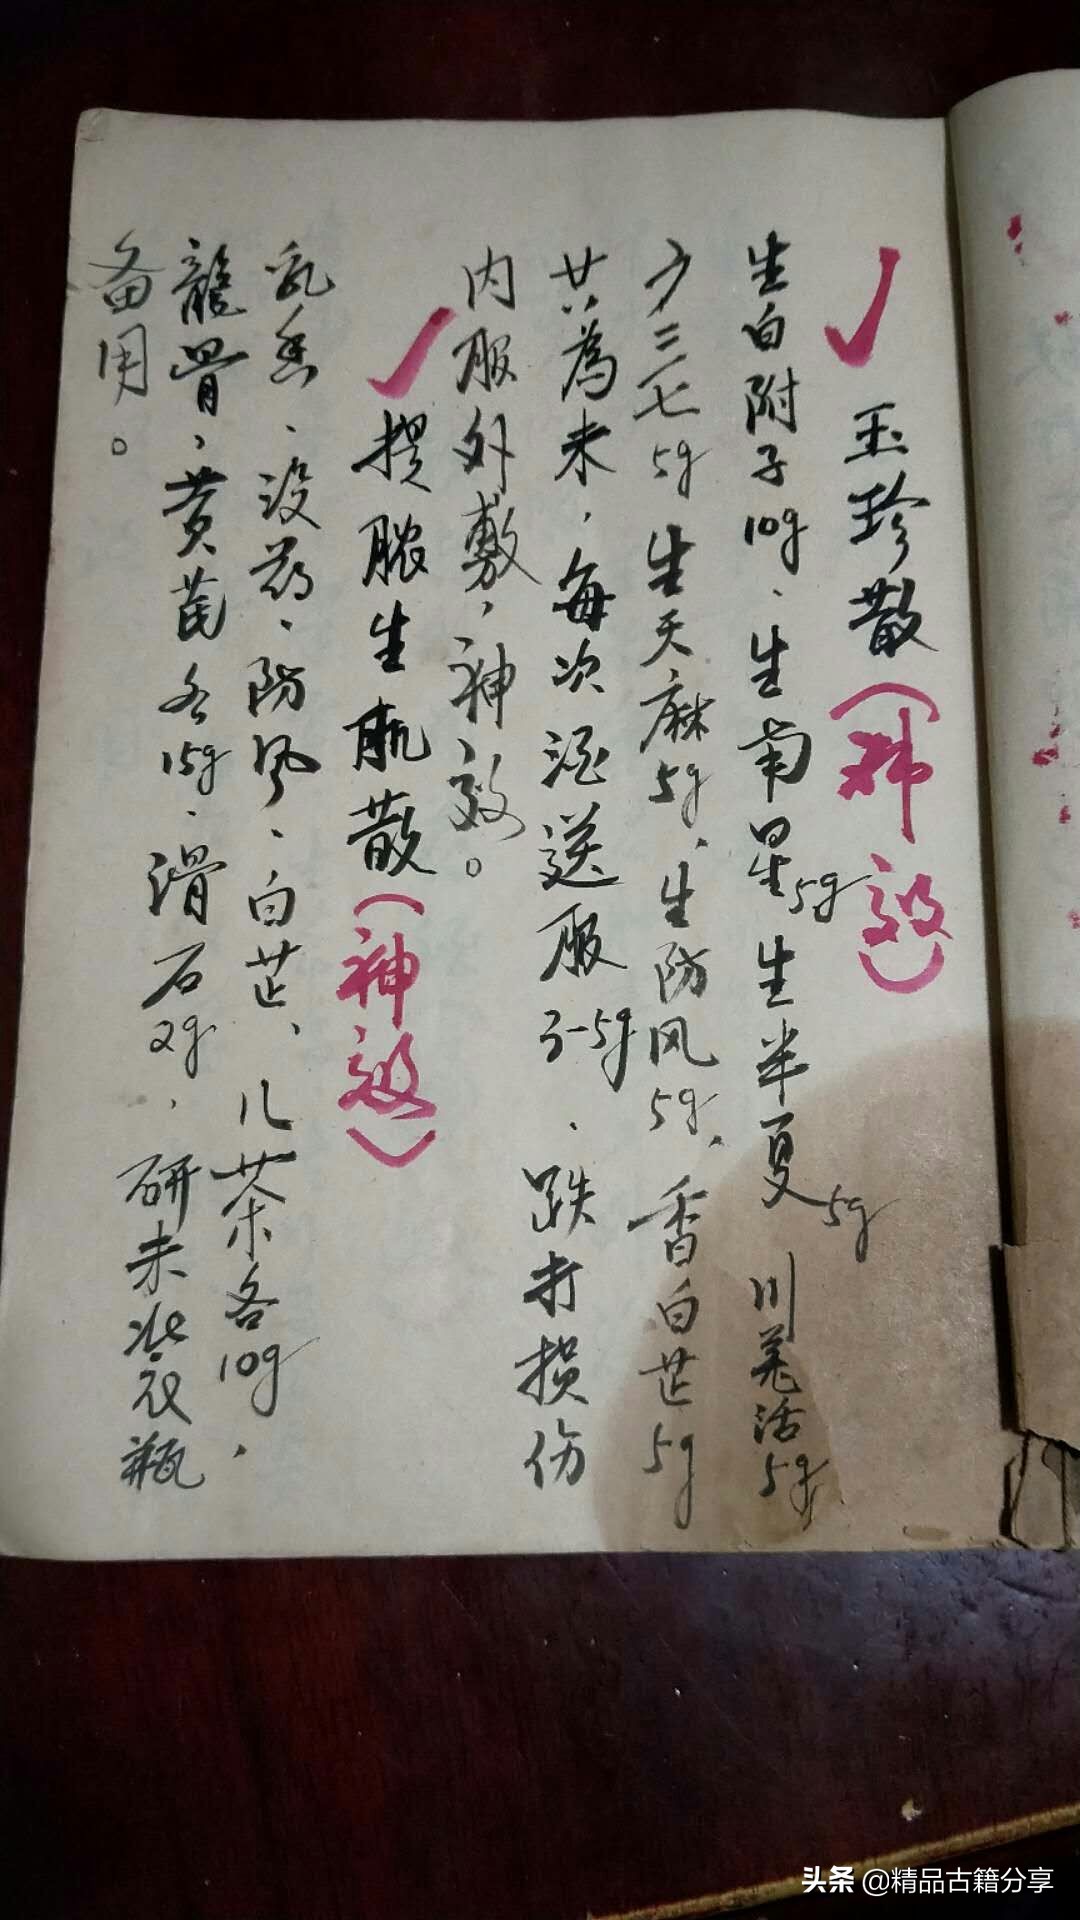 玉珍散（神效）
生白附子10g、生南星5g 生半夏5g 川羌活5g
广三七5g 生天麻5g、生防风5g、香白芷5g
共為末，每次酒送服3-5g、跌打损伤
内服外敷，神效。
提脓生肌散（神效）
乳香、没药、防风、白芷、儿茶各10g，
龍骨，黄芪各15g、滑石2g，研末装瓶
备用。
头条 @精品古籍分享